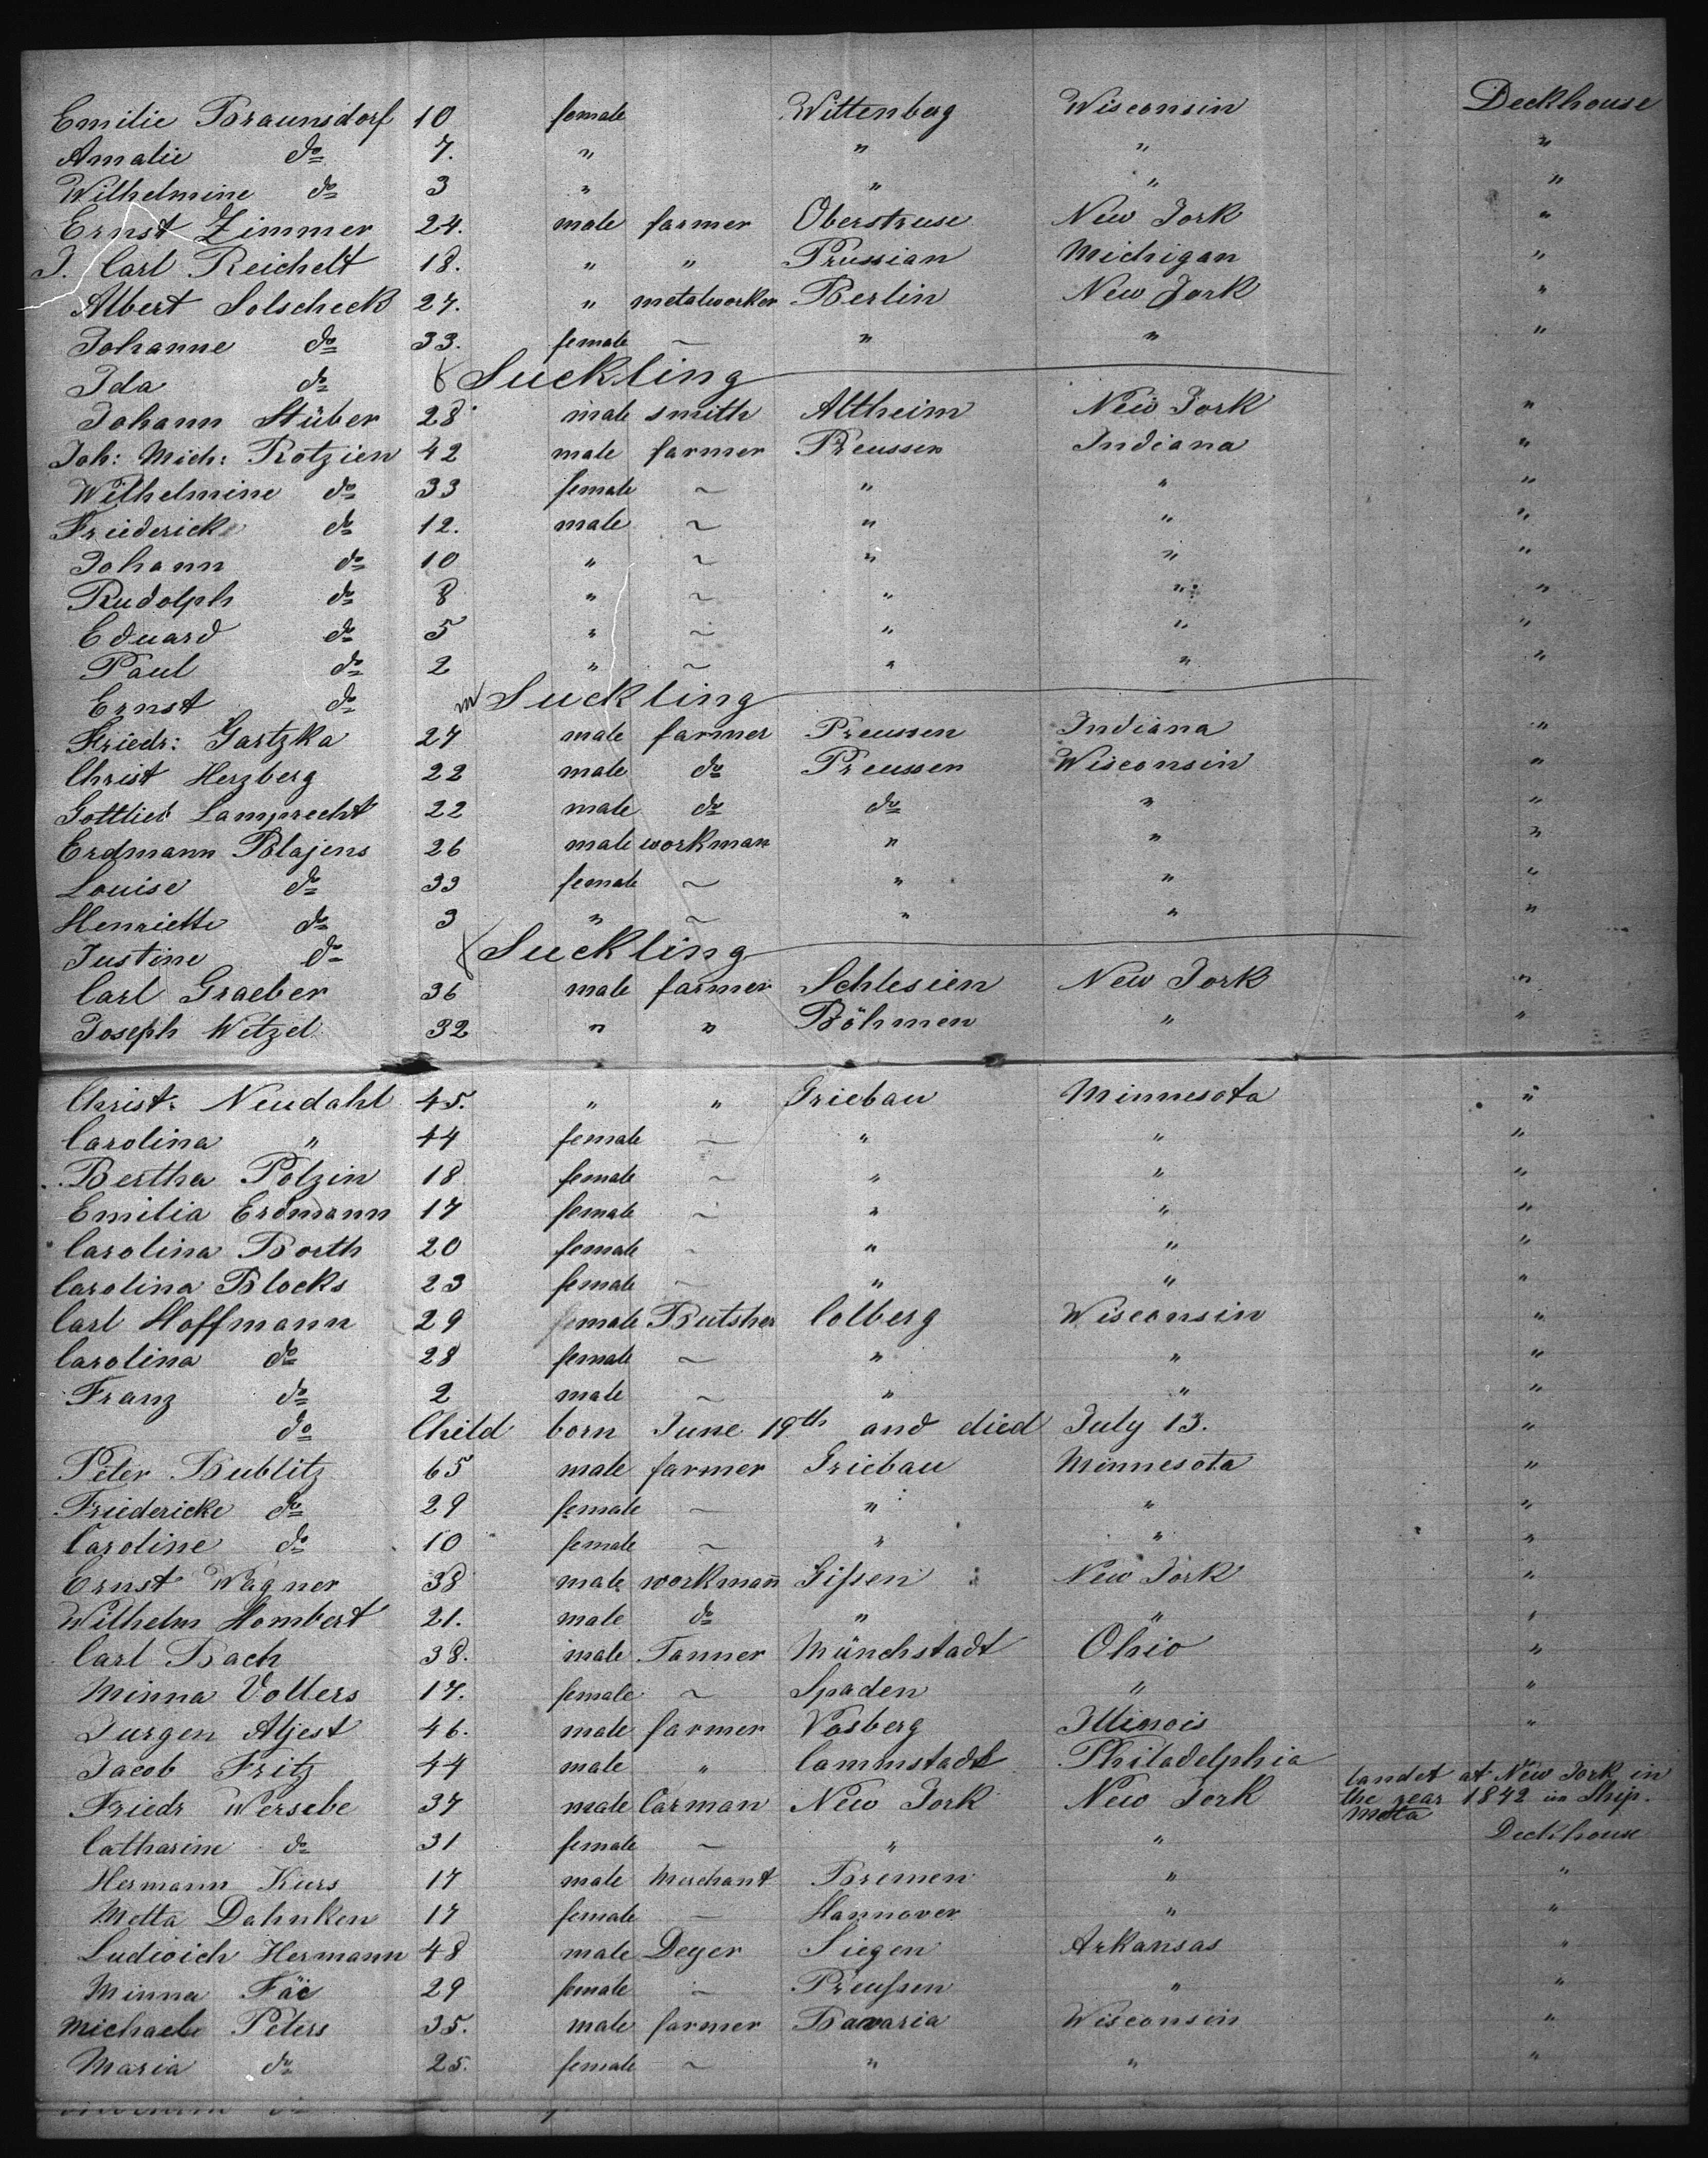 Emilie Braunsdorf 10 female Wittenberg Wisconsin Deckhouse
Amalie do 7. " " " "
Wilhelmine do 3 " " " "
Ernst Zimmer 24. male farmer Oberstruse New York "
J. Carl Reichelt 18. " " Prussian Michigan "
Albert Solscheck 27. " metalworker Berlin New York "
Johanne do 33. female ~ " " "
Ida do f Suckling
Johann Stüber 28 male smith Altheim New York "
Joh: Mich: Rotzien 42 male farmer Preussen Indiana "
Wilhelmine do 33 female ~ " " "
Friederick do 12. male ~ " " "
Johann do 10 " ~ " " "
Rudolph do 8 " ~ " " "
Eduard do 5 " ~ " " "
Paul do 2 " ~ " " "
Ernst do m Suckling
Friedr: Gartzka 27 male farmer Preussen Indiana "
Christ Herzberg 22 male do Preussen Wisconsin "
Gottlieb Lamprecht 22 male do do " "
Erdmann Blajens 26 male workman " " "
Louise do 33 female ~ " " "
Henriette do 3 " ~ " " "
Justine do f Suckling
Carl Graeber 36 male farmer Schlesien New York "
Joseph Wetzel 32 " " Böhmen " "
Christ: Neudahl 45. " " Griebau Minnesota "
Carolina " 44 female ~ " " "
Bertha Polzin 18 female ~ " " "
Emilia Erdmann 17 female ~ " " "
Carolina Borth 20 female ~ " " "
Carolina Blocks 23 female ~ " " "
Carl Hoffmann 29 male Butsher Colberg Wisconsin "
Carolina do 28 female ~ " " "
Franz do 2 male ~ " " "
do Child born June 19th and died July 13. "
Peter Bublitz 65 male farmer Griebau Minnesota "
Friedericke do 29 female ~ " " "
Caroline do 10 female ~ " " "
Ernst Wagner 38 male workmañ Gißen New York "
Wilhelm Hombert 21. male do " " "
Carl Bach 38. male Tanner Münchstadt Ohio "
Minna Volters 17. female ~ Spaden " "
Jurgen Aljest 46. male farmer Vosberg Illinois "
Jacob Fritz 44 male " Cammstadt Philadelphia
Friedr Wersebe 37 male Carman New York New York landet at New York in the year 1842 in Ship. Meta
Catharine do 31 female ~ " " Deckhouse
Hermann Kurs 17 male Merchant Bremen " "
Metta Dahnken 17 female ~ Hannover " "
Ludwich Hermann 48 male Deyer Siegen Arkansas "
Minna 29 female ~ Preußen " "
Michaele Peters 35. male farmer Bavaria Wisconsin "
Maria do 25. female ~ " " "